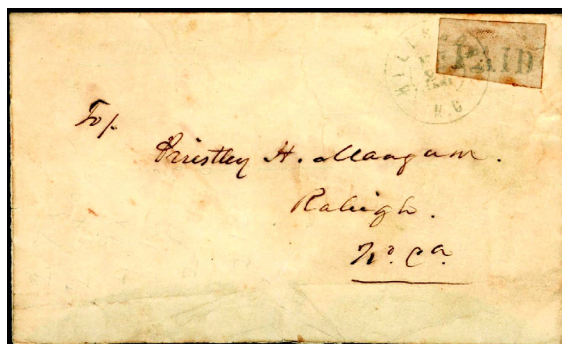 PAID
N.C
To/.
Priestley H. Mangum.
Raleigh.
No. Ca.